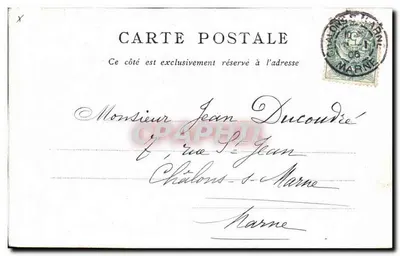 CARTE POSTALE
Ce côté est exclusivement réservé à l'adresse
CHALONS-S-MARNE
MARNE
Monsieur Jean Ducoudré
7, rue St Jean
Châlons-s-Marne
Marne